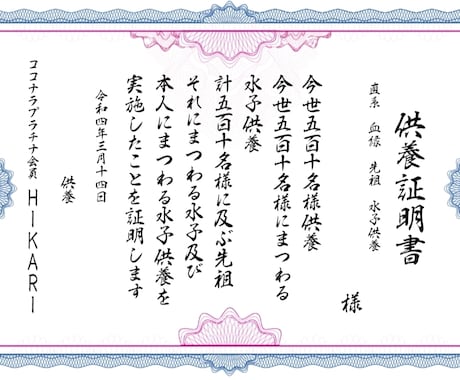 供養証明書
直系 血縁 先祖 水子供養
様
今世五百十名様供養
今世五百十名様にまつわる
水子供養
計五百十名様に及ぶ先祖
それにまつわる水子及び
本人にまつわる水子供養を
実施したことを証明します
令和四年三月十四日
供養
ココナラプラチナ会員 HIKARI